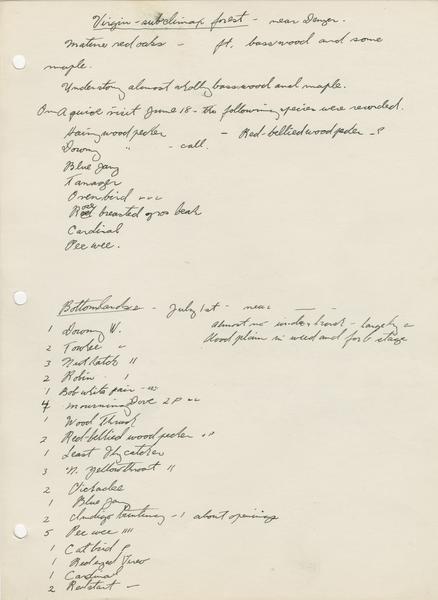 Virgin - subclimax forest - near Denzer.
Mature red oaks - ft. basswood and some
maple.
Understory almost wholly basswood and maple.
On A quick visit June 18 - the following species were recorded.
Hairy woodpecker - Red-bellied woodpecker - ?
Downy " - call.
Blue Jay
Tanager
Ovenbird
Rose breasted grosbeak
Cardinal
Pee wee.
Bottomlands - July 1st - near
1 Downy W. almost no underbrush - largely a
2 Towhee flood plain in weed and forb stage
3 Nuthatch 11
2 Robin 1
1 Bob white pair
4 Mourning Dove 2 P
1 Wood Thrush
2 Red-bellied woodpecker
1 Least Flycatcher
3 N. Yellowthroat 11
2 Chickadee
1 Blue Jay
2 Indigo Bunting - 1 about openings
5 Pee wee 1111
1 Catbird
1 Redeyed Vireo
1 Cardinal
2 Redstart -